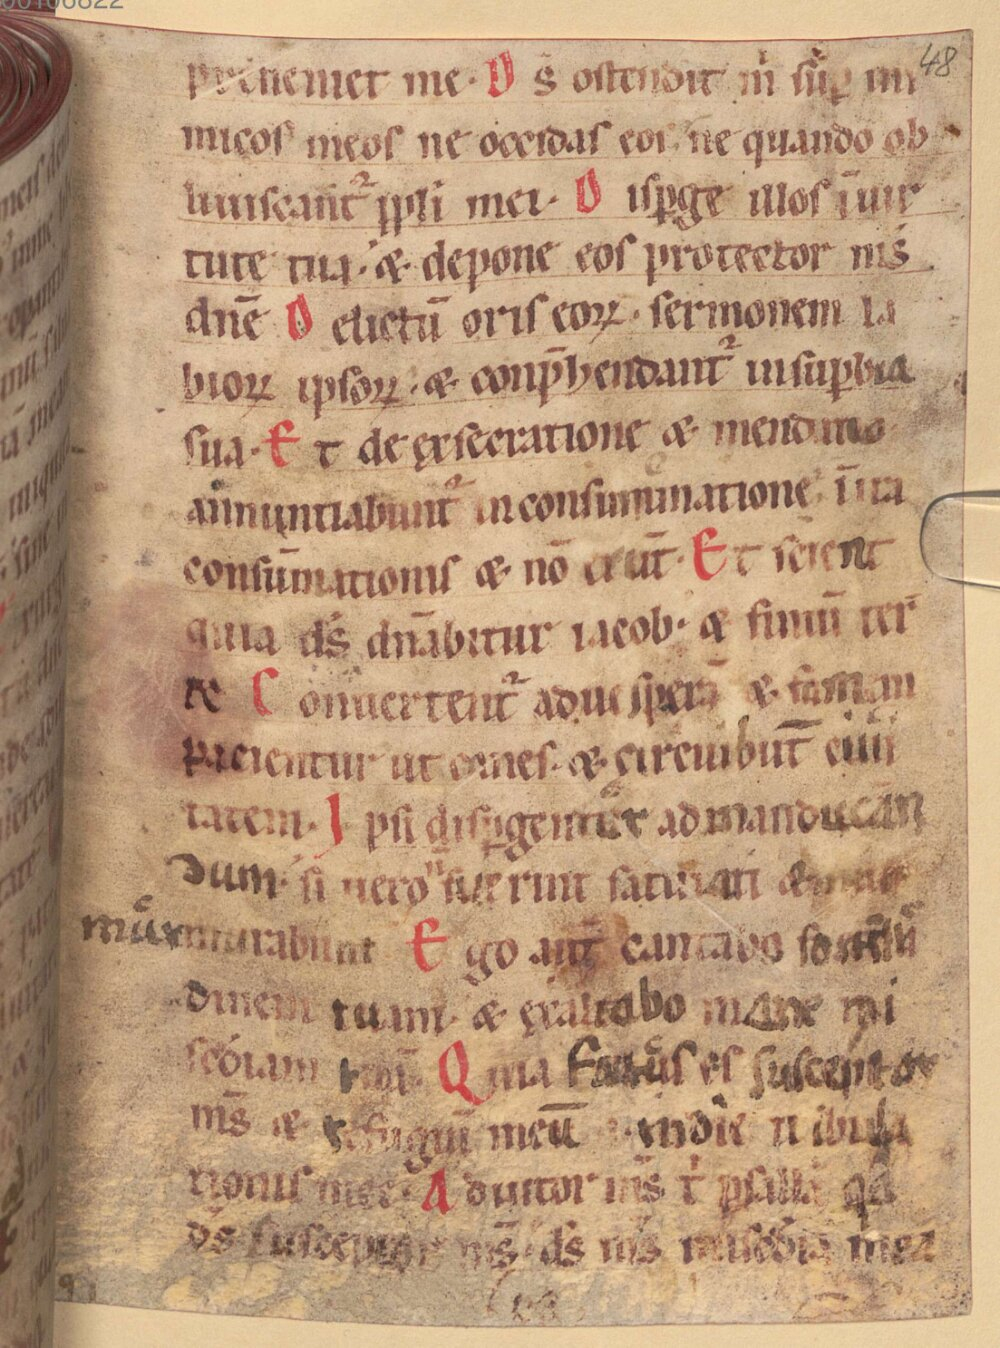 00106822
48
preueniet me. D s̄ ostendit m̄ sup̄ ini
micos meos ne occidas eos. ne quando ob
liuiscant᷑ ppl̄i mei. D isp̱ge illos ī uir
tute tua. & depone eos protector m̄s
dn̄e D elictū oris eoꝝ. sermonem la
bioꝝ ipsoꝝ. & conp̄hendant᷑ in sup̱bia
sua. E t de execratione & mendatio
annuntiabunt᷑ in consummatione. ī ira
consūmationis & nō erūt. E t scient
quia ds̄ dn̄abitur iacob. & finiū ter
re C onuertent᷑ ad uesperā & famem
pacientur ut canes. & circuibūt ciui
tatem. I psi disp̱gentur ad manducan
dum. si uero n̄ fuerint saturati &
murmurabunt E go aut̄ cantabo fortitu
dinem tuam. & exaltabo mane mi
sc̄diam tuā. Q uia factus es susceptor
ms̄ & refugiū meū in die tribula
tionis mee. A diutor ms̄ t̄ psallā qa
ds̄ susceptor ms̄. ds̄ ms̄ misc̄dia mea